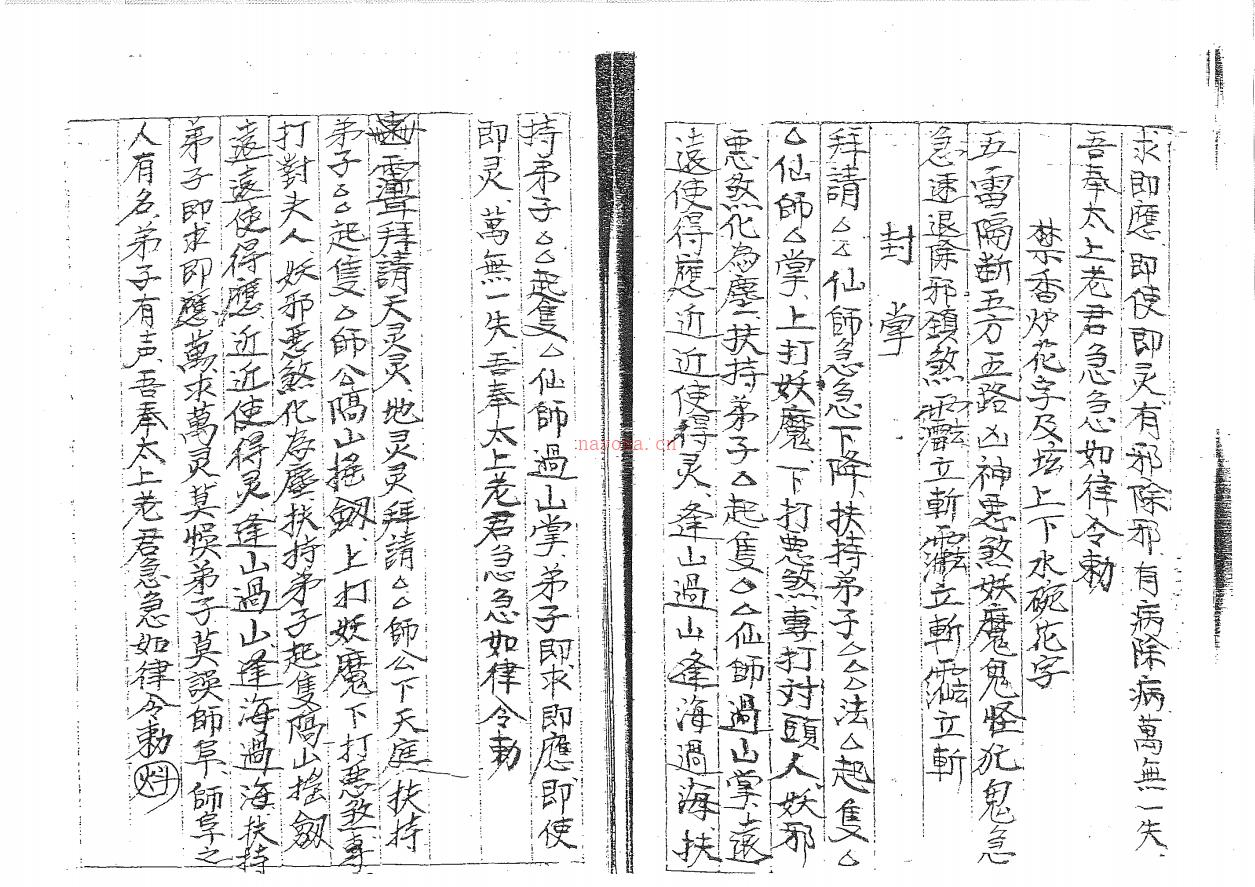 求即應、即使即灵、有邪除邪、有病除病、萬無一失、
吾奉太上老君急急如律令勅
禁香炉花字及坛上下水碗花字
五雷隔断五方五路凶神悪煞妖魔鬼怪犯鬼急
急速退除邪鎮煞 立斬 立斬 立斬
封掌
拜請△△仙師急急下降、扶持弟子△△法△起隻△
△仙師△掌、上打妖魔、下打悪煞、專打対頭人、妖邪
悪煞化為塵、扶持弟子△起隻△△仙師過山掌、遠
遠使得應、近近使得灵、逢山過山、逢海過海、扶
持弟子△△起隻△仙師過山掌、弟子即求即應、即使
即灵、萬無一失、吾奉太上老君急急如律令勅
拜請天灵灵、地灵灵、拜請△△師公下天庭、扶持
弟子△△起隻△師公隔山搖劔、上打妖魔、下打悪煞、專
打對夫人、妖邪悪煞化为塵、扶持弟子起隻隔山搖劔
遠遠使得應、近近使得灵、逢山過山、逢海過海、扶持
弟子即求即應、萬求萬灵、莫悞弟子、莫誤師阜、師阜之
人有名、弟子有声、吾奉太上老君急急如律令勅
nayona.cn